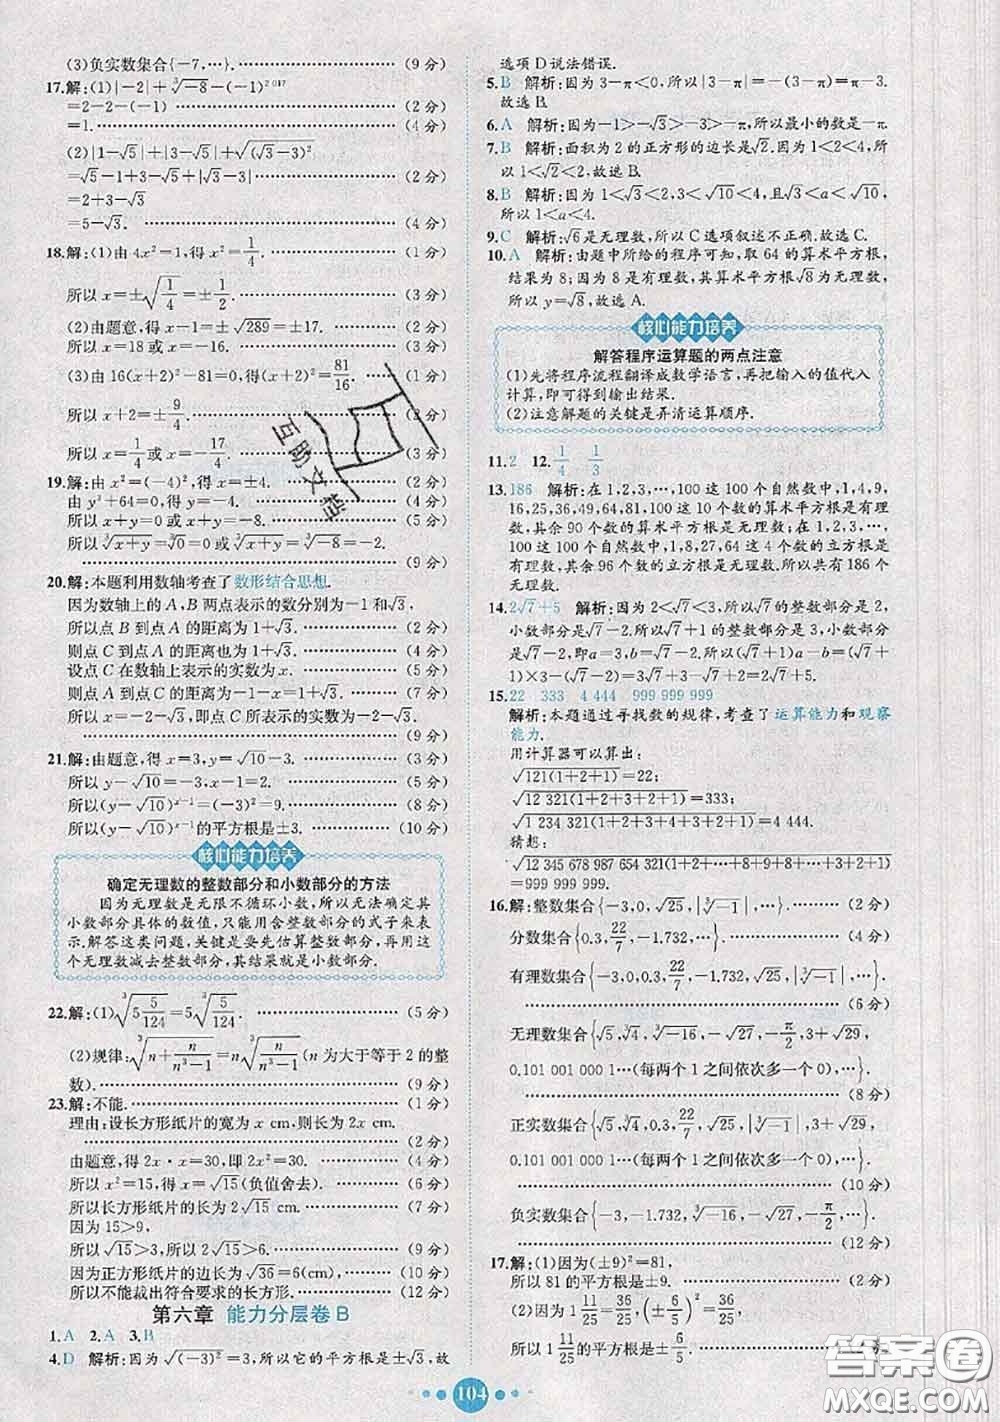 (3)负实数集合{-7,…}. (9分)
17.解:(1)|-2|+∛-8-(-1)²⁰¹⁷
=2-2-(-1) (2分)
=1. (4分)
(2)|1-√5|+|√5-√3|+√(√3-3)²
=√5-1+3-√5+|√3-3| (2分)
=2+3-√3
=5-√3. (4分)
18.解:(1)由 4x²=1,得 x²=1/4. (1分)
所以 x=±√(1/4)=±1/2. (3分)
(2)由题意,得 x-1=±√289=±17. (2分)
所以 x=18 或 x=-16. (3分)
(3)由 16(x+2)²=81,得(x+2)²=81/16. (1分)
所以 x+2=±9/4. (2分)
所以 x=1/4 或 x=-17/4. (3分)
19.解:由 x²=(-4)²,得 x=±4. (2分)
由 y³+64=0,得 y=-4. (4分)
所以 x+y=0 或 x+y=-8. (5分)
所以∛(x+y)=∛0=0 或∛(x+y)=∛-8=-2.
(9分)
20.解:本题利用数轴考查了数形结合思想.
因为数轴上的 A,B 两点表示的数分别为-1和√3,
所以点 B 到点 A 的距离为 1+√3. (2分)
则点 C 到点 A 的距离也为 1+√3. (4分)
设点 C 在数轴上表示的实数为 x. (5分)
则点 A 到点 C 的距离为-1-x=1+√3. (7分)
所以 x=-2-√3,即点 C 所表示的实数为-2-√3.
(9分)
21.解:由题意,得 x=3,y=√10-3. (3分)
所以 y-√10=-3,x-1=2. (5分)
所以(y-√10)ˣ⁻¹=(-3)²=9. (8分)
所以(y-√10)ˣ⁻¹的平方根是±3. (10分)
核心能力培养
确定无理数的整数部分和小数部分的方法
因为无理数是无限不循环小数,所以无法确定其
小数部分具体的数值,只能用含整数部分的式子来表
示.解答这类问题,关键是要先估算整数部分,再用这
个无理数减去整数部分,其结果就是小数部分.
22.解:(1)∛(5 5/124)=5∛(5/124). (5分)
(2)规律:∛(n+n/(n³-1))=n∛(n/(n³-1))(n 为大于等于 2 的整
数). (9分)
23.解:不能. (1分)
理由:设长方形纸片的宽为 x cm,则长为 2x cm.
(2分)
由题意,得 2x·x=30,即 2x²=30. (4分)
所以 x²=15,x=√15(负值舍去). (6分)
所以长方形纸片的长为 2√15 cm. (7分)
因为 15>9,
所以√15>3,所以 2√15>6. (9分)
因为正方形纸片的边长为√36=6(cm), (10分)
所以不能裁出符合要求的长方形. (12分)
第六章 能力分层卷B
1.A 2.A 3.B
4.D 解析:因为√(-3)²=3,所以它的平方根是±√3,故
选项 D 说法错误.
5.B 解析:因为 3-π<0,所以|3-π|=-(3-π)=π-3.
故选 B.
6.A 解析:因为-1>-√3>-3>-π,所以最小的数是-π.
7.B 解析:面积为 2 的正方形的边长是√2.因为 1<2<4,
所以 1<√2<2,故选 B.
8.B 解析:因为 1<√3<2,3<√10<4,且√3<a<√10,
所以 1<a<4.
9.C 解析:√6是无理数,所以 C 选项叙述不正确.故选 C.
10.A 解析:由题中所给的程序可知,取 64 的算术平方根,
结果为 8;因为 8 是有理数,其算术平方根√8为无理数,
所以 y=√8,故选 A.
核心能力培养
解答程序运算题的两点注意
(1)先将程序流程翻译成数学语言,再把输入的值代入
计算,即可得到输出结果.
(2)注意解题的关键是弄清运算顺序.
11.2 12.1/4 1/3
13.186 解析:在 1,2,3,…,100 这 100 个自然数中,1,4,9,
16,25,36,49,64,81,100 这 10 个数的算术平方根是有理
数,其余 90 个数的算术平方根是无理数;在 1,2,3,…,
100 这 100 个自然数中,1,8,27,64 这 4 个数的立方根是有
理数,其余 96 个数的立方根是无理数,所以共有 186 个
无理数.
14.2√7+5 解析:因为 2<√7<3,所以√7的整数部分是 2,
小数部分是√7-2,所以√7+1 的整数部分是 3,小数部分
是√7-2,即 a=3,b=√7-2,所以(√7+1)a-b=(√7+
1)×3-(√7-2)=3√7+3-√7+2=2√7+5.
15.22 333 4 444 999 999 999
解析:本题通过寻找数的规律,考查了运算能力和观察
能力.
用计算器可以算出:
√121(1+2+1)=22;
√12 321(1+2+3+2+1)=333;
√1 234 321(1+2+3+4+3+2+1)=4 444.
猜想:
√12 345 678 987 654 321(1+2+…+8+9+8+…+2+1)
16.解:整数集合{-3,0,√25,|∛-1|,…}. (2分)
分数集合{0.3,22/7,-1.732,…}. (4分)
有理数集合{-3,0,0.3,22/7,-1.732,√25,|∛-1|,…}.
(6分)
无理数集合{√5,∛4,∛-16,-√27,-π/2,3+√29,
0.101 001 000 1…(每两个 1 之间依次多一个 0),…}.
(8分)
正实数集合{√5,∛4,0.3,22/7,√25,|∛-1|,3+√29,
0.101 001 000 1…(每两个 1 之间依次多一个 0),…}.
(10分)
负实数集合{-3,-1.732,∛-16,-√27,-π/2,…}.
(12分)
17.解:(1)因为(±9)²=81,
所以 81 的平方根是±9. (2分)
(2)因为 1 11/25=36/25,(±6/5)²=36/25,
所以 1 11/25 的平方根是±6/5.
104
互助文档
答案圈
MXQE.COM